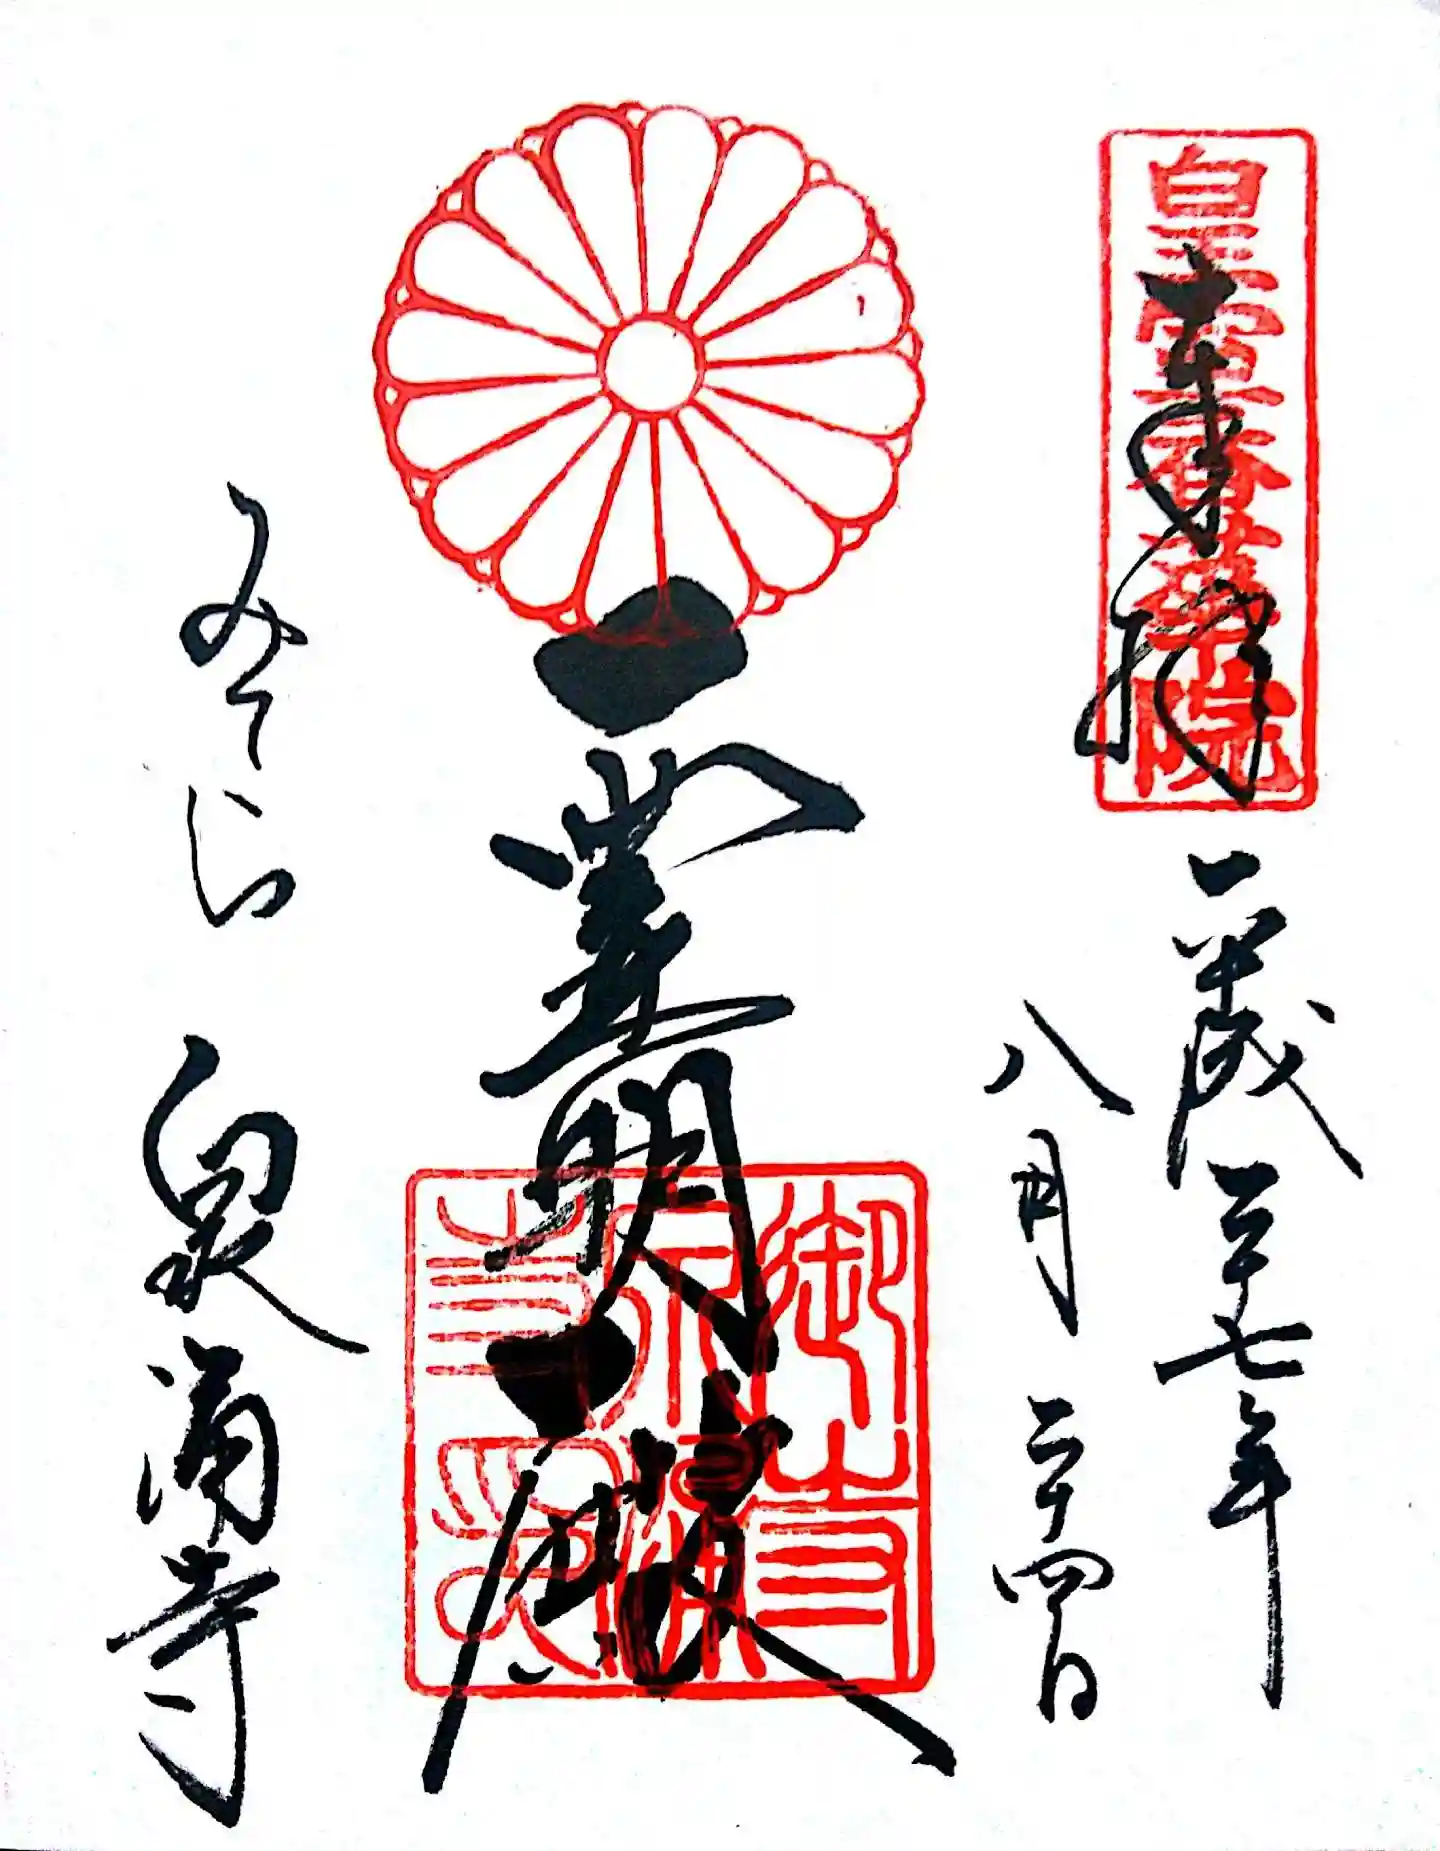 皇室香華院
奉拝
平成二十七年
八月二十四日
霊明殿
御寺泉涌寺印
みてら 泉涌寺